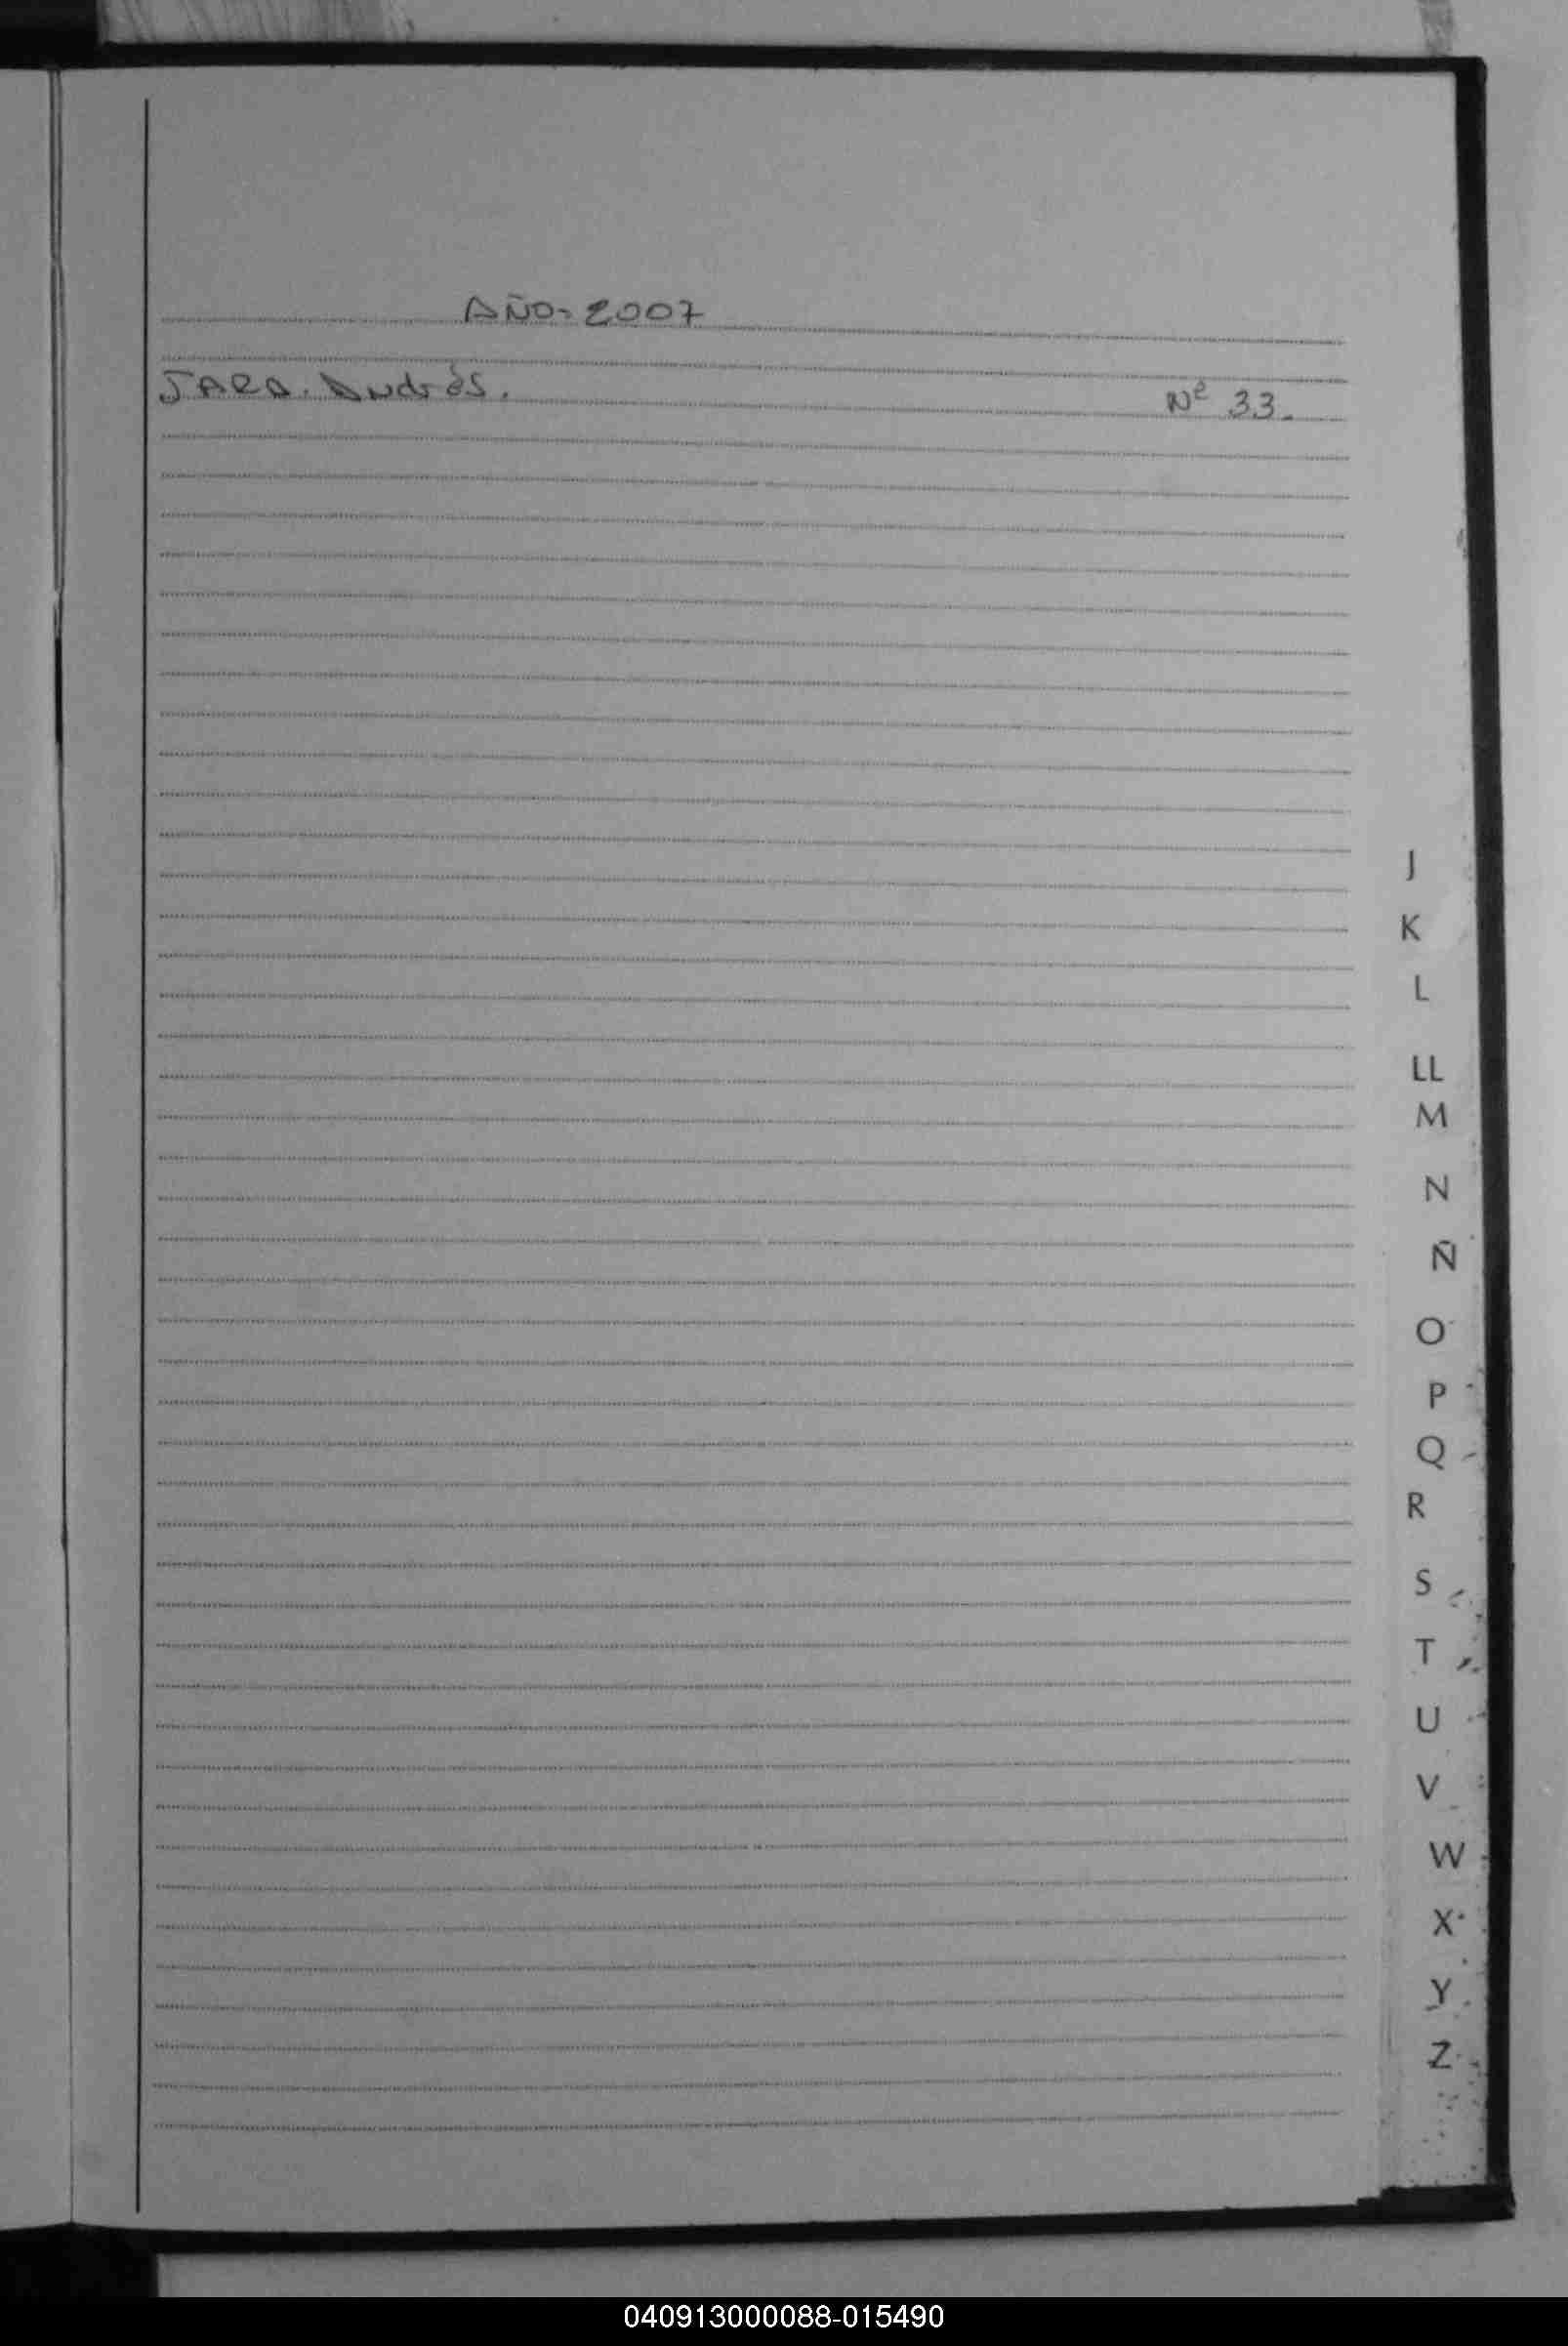 AÑO - 2007
JARA. Andrés. Nº 33.
J
K
L
LL
M
N
Ñ
O
P
Q
R
S
T
U
V
W
X
Y
Z
040913000088-015490